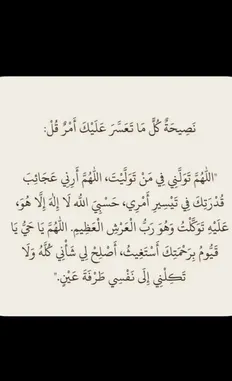 نَصِيحَةٌ كُلَّ مَا تَعَسَّرَ عَلَيْكَ أَمْرٌ قُلْ:
"اللَّهُمَّ تَوَلَّنِي فِي مَنْ تَوَلَّيْتَ، اللَّهُمَّ أَرِنِي عَجَائِبَ
قُدْرَتِكَ فِي تَيْسِيرِ أَمْرِي، حَسْبِيَ اللهُ لَا إِلَهَ إِلَّا هُوَ،
عَلَيْهِ تَوَكَّلْتُ وَهُوَ رَبُّ الْعَرْشِ الْعَظِيمِ. اللَّهُمَّ يَا حَيُّ يَا
قَيُّومُ بِرَحْمَتِكَ أَسْتَغِيثُ، أَصْلِحْ لِي شَأْنِي كُلَّهُ وَلَا
تَكِلْنِي إِلَى نَفْسِي طَرْفَةَ عَيْنٍ."